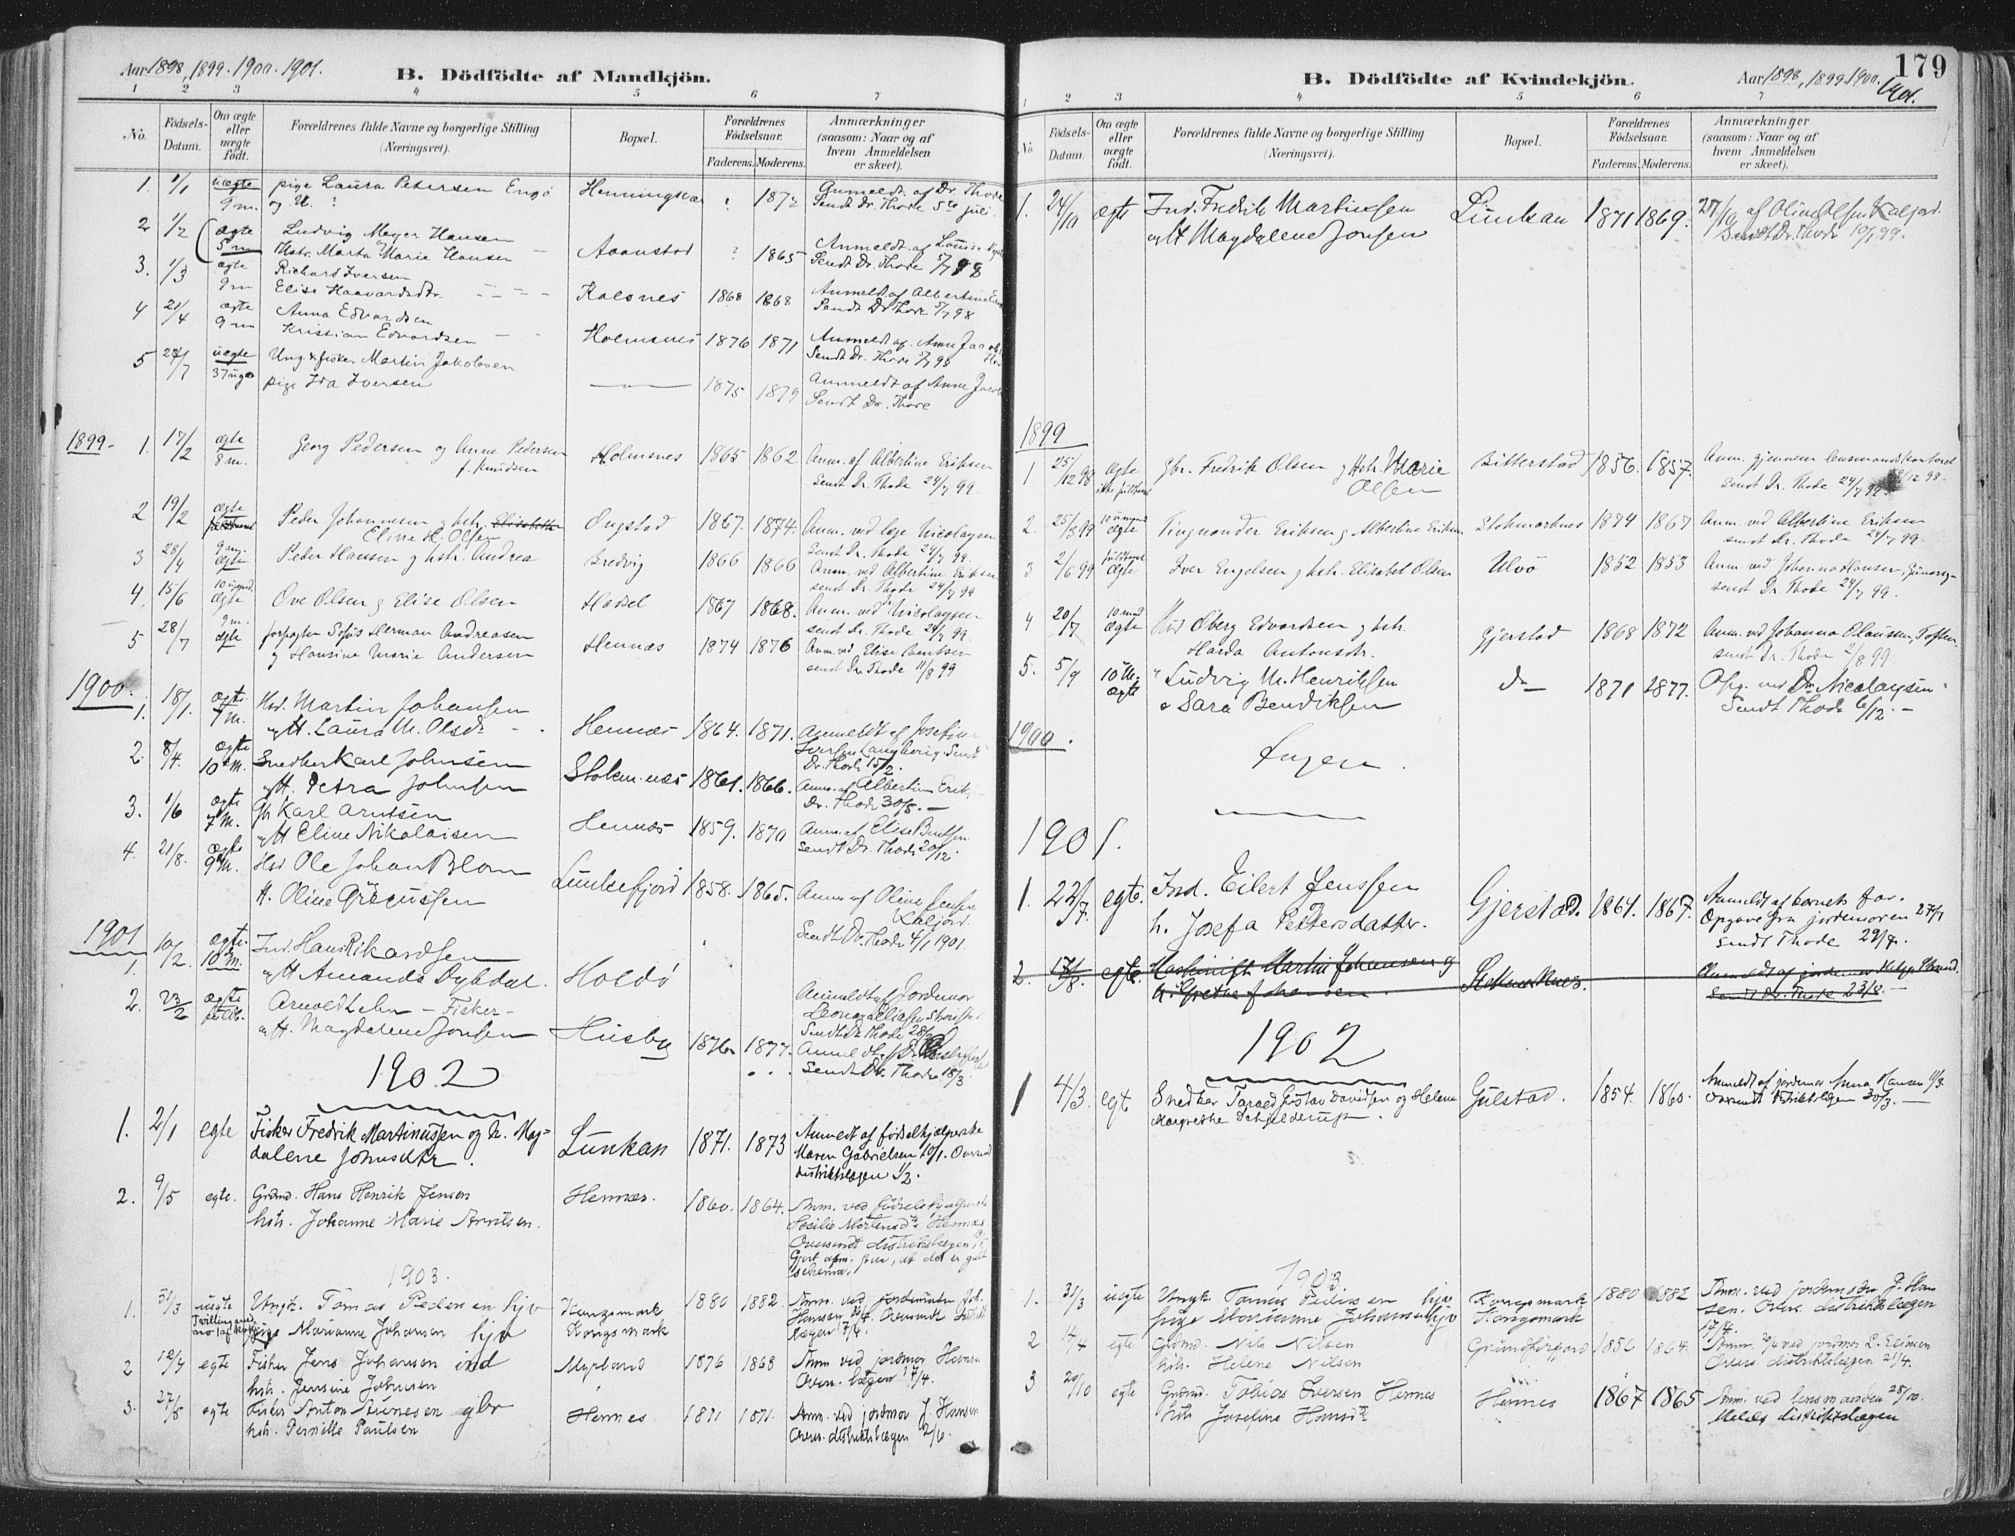 Aar 1898, 1899. 1900. 1901.
B. Dödfödte af Mandkjön.
1 2 3 4 5 6 7
No.
Födsels-Datum.
Om ægte eller uægte födt.
Forældrenes fulde Navne og borgerlige Stilling (Næringsvei).
Bopæl.
Forældrenes Födselsaar.
Faderens. Moderens.
Anmærkninger (saasom: Naar og af hvem Anmeldelsen er skeet).
1. 1/1 uægte pige Laura Petersen Engö Henningsvær ? 1872 Anmeldt af Dr. Thode
9 m. og U. ? Sendt Dr. Thode 5te Juli
2 1/2 ægte Ludvig Meyer Hansen
5 m Hstr. Marta Marie Hansen Aaanstad ? 1865 Anmeldt af
Sendt Dr. Thode 5/7 98
3. 1/3 ægte Richard Iversen
9 m Elise Haavardsdtr. Kalsnes 1868 1868 Anmeldt af Albertine
Sendt Dr Thode 5/7 98
4 21/4 ægte Anna Edvardsen
9 m Kristian Edvardsen Holmsnes 1876 1871 Anmeldt af Anne
Sendt Dr. Thode 5/7 98
5 27/7 uægte Ung. fisker Martin Jakobsen
37 uger pige Ida Iversen 1875 1879 Anmeldt af Anne
Sendt Dr. Thode
1899. 1. 17/2 ægte Georg Pedersen og Anne Pedersen Holmsnes 1865 1862 Anm. af Albertine Eriksen
8 m. f. Knudsen sendt Dr. Thode 24/7 99.
2 19/2 ægte Peder Johannesen g hstr. Elisabeth Ongstad 1867. 1874. Anm. ved læge Nicolaysen
Eline H. Olsen sendt Dr. Thode 24/7 99.
3 28/4 9 m. ægte Peder Hansen g hstr. Andrea Bredvig 1866 1866 Anm. ved Albertine Eriksen
sendt Dr. Thode 24/7 99
4. 15/6 ægte Ove Olsen g Elise Olsen Hadsel 1867 1868. Anm. ved Nicolaysen
sendt Dr. Thode 24/7 99.
5 28/7 9 m. ægte forpagter Sofus Herman Andreasen Hennæs 1874 1876 Anm. ved Elise Bentsen
g Hansine Marie Andersen sendt Dr. Thode 11/8 99
1900.
1. 18/1. ægte Hsd. Martin Johansen
7 M. og H. Laura M. Olsdr Hennæs 1864. 1871. Anmeldt af Josefine
Sendt Dr. Thode 15/2.
2. 8/4. ægte Snedker Karl Johnsen
10 M. og H. Petra Johnsen Stokm.næs 1861. 1866. Anm. af Albertine Erik.
Dr. Thode 30/5.
3. 1/6 ægte Gbr Karl Arntsen
7 M. og H Eline Nikolaisen Hennæs 1859. 1870 Anm. af Elise Bentsen
Sendt Dr. Thode 20/12.
4. 21/8. ægte Hsd Ole Johan Blom
9 M. H. Oline Grægussen Lunkefjord 1858. 1865. Anm. af Oline Jensen
Kaljord.
Sendt Dr. Thode 4/1 1901.
1901
1. 10/2. ægte Ind. Hans Rikardsen
10 M. og H Amanda Dybdal. Holdö Anmeldt af Jordemor
2. 23/2 ægte Arnoldt Lehn - Fisker -
fuldb. og H. Magdalene Jonsen Husby 1876. 1877. Sendt Dr Thode 28/2
Sendt Dr. Thode 18/3.
1902
1. 2/1 egte Fisker Fredrik Martinussen og h. Mag- Lunkan 1871. 1873 Anmeldt af fødselhjælperske
dalene Johnsdtr. Maren Gabrielsen 10/1. Oversendt
distriktslægen 1/2.
2. 9/5 egte. Grdmd. Hans Henrik Jensen Hennæs. 1860. 1864. Anm. ved fødselshjælperske
hstr. Johanne Marie Arntsen. Hennæs
Oversendt distriktslægen
1903.
1. 31/3 uegte Ungk. Tomas Pedersen hjv Kongsmark 1880 1882. Anm. ved jordemoder Joh.
pige Marianne Johansen hjv Kongsmark Hansen Oversendt distrikts-
lægen 17/4.
2 12/4 egte Fisker Jens Johansen ind Myrland 1876 1868 Anm ved jordmor Hansen
hstr. Jensine Johnsen Overs. lægen 17/4.
3. 27/5 egte Fisker Anton Arnesen gbr Hennes 1871 1871. Anm. ved jordmor J. Hansen
hstr. Pernille Paulsen Overs. distriktslægen 2/6.
179
B. Dödfödte af Kvindekjön.
Aar 1898, 1899 1900. 1901.
1 2 3 4 5 6 7
No.
Födsels-Datum.
Om ægte eller uægte födt.
Forældrenes fulde Navne og borgerlige Stilling (Næringsvei).
Bopæl.
Forældrenes Födselsaar.
Faderens. Moderens.
Anmærkninger (saasom: Naar og af hvem Anmeldelsen er skeet).
1. 24/10 ægte Ind. Fredrik Martinusen Lunkan 1871 1869. 27/10 af Oline Olsen Kaljord.
og H Magdalene Jonsen Sendt Dr. Thode 10/1 99.
1899
1 25/12 98 ægte gbr. Fredrik Olsen g hstr. Marie Bitterstad 1856. 1857. Anm. gjennem lensmandskontoret
Olsen sendt Dr. Thode 24/7 99.
2. 25/3 99 ægte Tingmander Eriksen g Albertine Eriksen Stokmarknes 1874 1867 Anm. ved Albertine Eriksen
sendt Dr. Thode 24/7 99.
3 2/6 99 fuldbaaret ægte Iver Engelsen g hstr. Elisabet Olsen Ulvö 1852 1853 Anm. ved Johanna Hansen,
sendt Dr. Thode 24/7 99.
4 20/7 ægte Hsd Oberg Edvardsen g hstr. Gjerstad 1868 1872 Anm. ved Johanna Clausen, Toften
Harda Antonsdtr. sendt Dr. Thode 2/8 99.
5. 5/9 10 M. ægte " Ludvig M. Henriksen do 1871 1877. Opg. ved Dr. Nicolaysen
" Sara Bendiksen Sendt Thode 6/12.
1900.
Ingen.
1901.
1. 22/7. egte. Ind. Eilert Jenssen Gjerstad. 1864. 1867. Anmeldt af barnets far.
h. Josefa Pettersdatter. Opgave fra jordemoren 27/7
sendt Thode 29/7.
2. 17/8. egte. Martin Johansen og Stokmarknes.
Grethe Johansen. Sendt Dr. Thode 23/8.
1902
1 4/3. egt Snedker Tarald Gustav Davidsen og Helene Gulstad. 1854. 1860. Anmeldt af jordemor Anna Hansen 11/3.
Margrethe Schjelderup. Oversendt distriktslægen 30/3.
1903.
1. 31/3 uegte Ungk. Tomas Pedersen hjv Kongsmark 1880 1882 Anm. ved jordemoder J. Han
pige Marianne Johansen hjv Kongsmark sen. Overs. distriktslægen
17/4.
2 14/4 egte Grdmd. Nils Nilsen Grundførfjord 1856 1864. Anm. ved jordmor L. Ellingsen
hstr. Helene Nilsen Overs. distriktslægen 21/4.
3 20/10 egte Grdmd. Tobias Iversen Hennes Hennes 1867 1865 Anm. ved lensmanden 28/10.
hstr Josefine Hansdtr Meldt distriktslægen